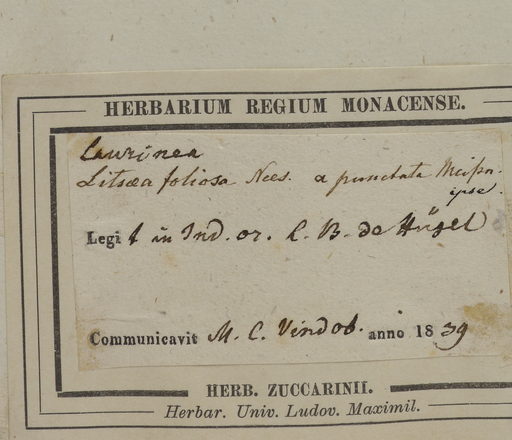 HERBARIUM REGIUM MONACENSE.
Laurinea
Litsæa foliosa Nees. α punctata Meißn.
ipse.
Legit in Ind. or. L. B. de Hügel
Communicavit M. C. Vindob. anno 1839
HERB. ZUCCARINII.
Herbar. Univ. Ludov. Maximil.